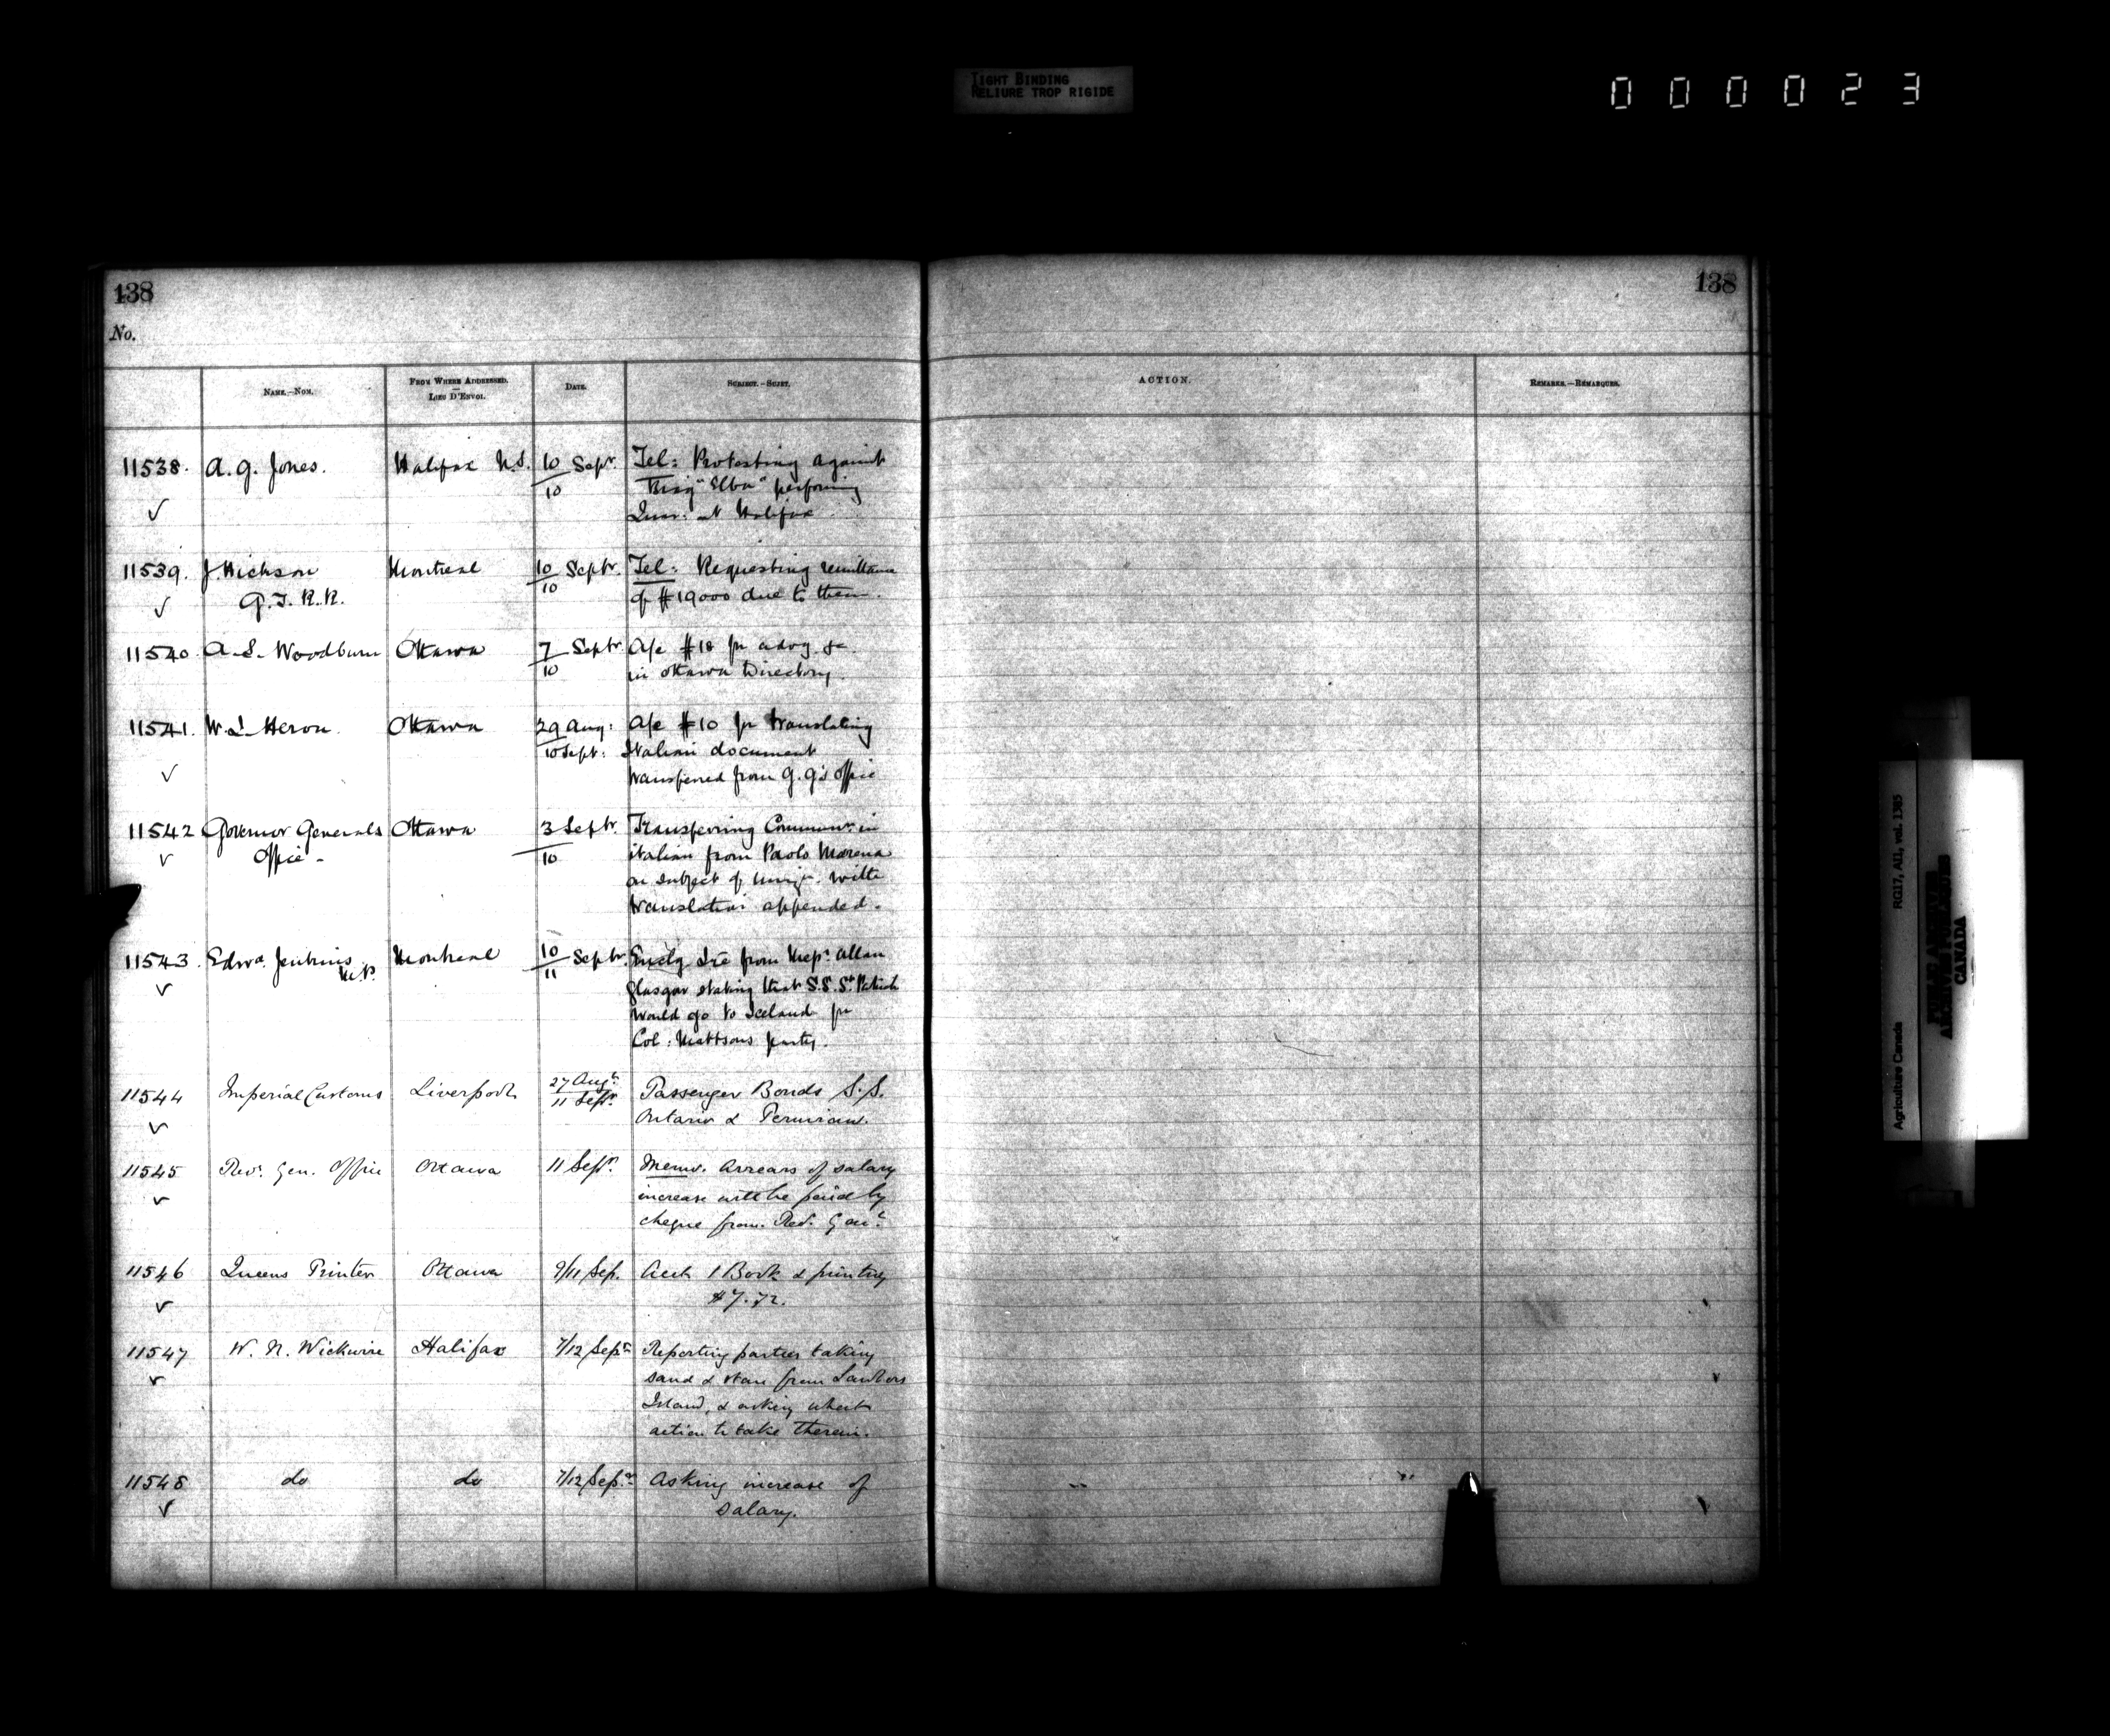 TIGHT BINDING
RELIURE TROP RIGIDE
000023
138
138
No.
NAME.—NOM.
FROM WHERE ADDRESSED.
LIEU D'ENVOI.
DATE.
SUBJECT.—SUJET.
ACTION.
REMARKS.—REMARQUES.
11538. A. G. Jones. Halifax N.S. 10 Septr. Tel: Protesting against
10 Brig "Elba" performing
✓ Quar: at Halifax.
11539. J. Hickson Montreal 10 Septr. Tel: Requesting remittance
✓ G. T. R. R. 10 of $19000 due to them.
11540. A. S. Woodburn Ottawa 7 Septr A/c $18 for advg &c
10 in Ottawa Directory.
11541. W. L. Heron. Ottawa 29 Aug: A/c $10 for translating
10 Sept: Italian document
✓ transferred from G. G's Office
11542 Governor Generals Ottawa 3 Septr. Transferring Communn. in
✓ Office - 10 italian from Paolo Morena
on subject of Immign. with
translation appended.
11543. Edwd. Jenkins Montreal 10 Septr. from Messrs. Allan
✓ M.P. 11 Glasgow stating that S.S. St. Patrick
would go to Iceland for
Col: Mattsons party.
11544 Imperial Customs Liverpool 27 Augt. Passenger Bonds S.S.
✓ 11 Septr. Ontario & Peruvian.
11545 Recr. Gen. Office Ottawa 11 Septr. Memo. Arrears of salary
✓ increase will be paid by
cheque from Rec. Genl.
11546 Queens Printer Ottawa 9/11 Sep. Acct 1 Book & printing
✓ $7.72.
11547 W. N. Wickwire Halifax 7/12 Sepr. Reporting parties taking
✓ sand & stone from Lawlors
Island, & asking what
action to take therein.
11548 do do 7/12 Sepr. Asking increase of
✓ salary.
Agriculture Canada RG17, AII, vol. 1385
PUBLIC ARCHIVES
ARCHIVES PUBLIQUES
CANADA